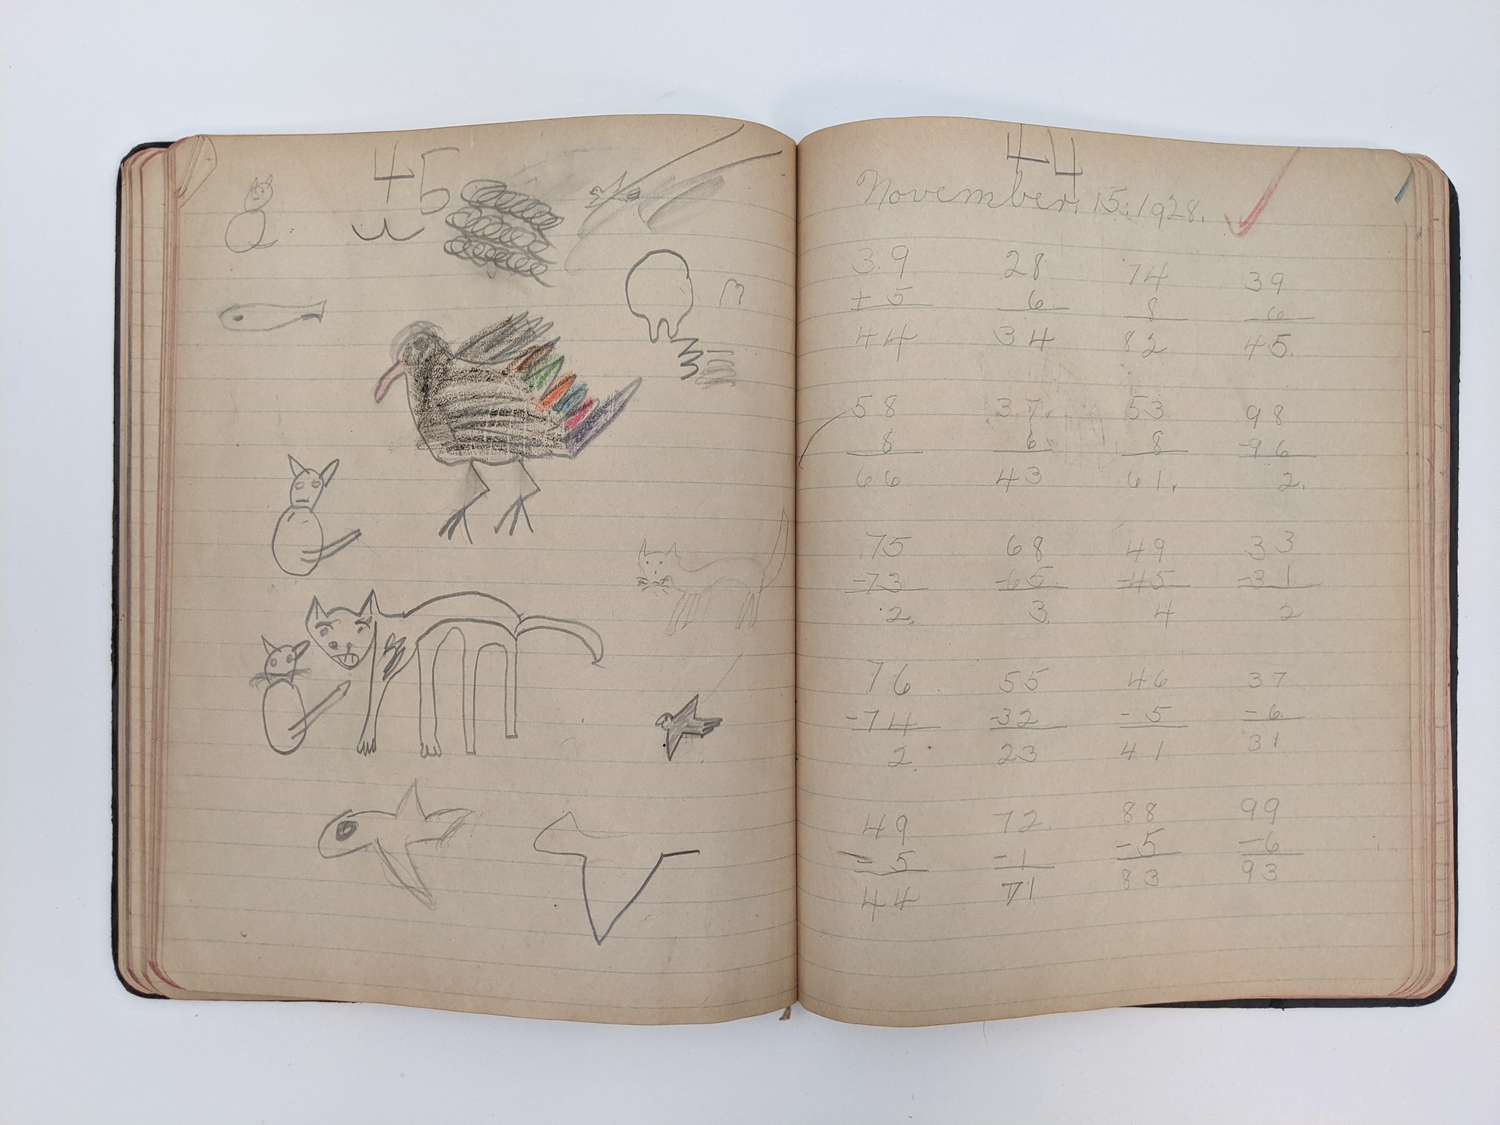 45
44
November, 15, 1928.
39 28 74 39
+ 5 6 8 6
44 34 82 45.
58 37. 53 98
8 6. 8 -96
66 43 61. 2.
75 68 49 33
-73 -65 -45 -31
2. 3. 4 2
76 55 46 37
-74 -32 -5 -6
2. 23 41 31
49 72. 88 99
-5 -1 -5 -6
44 71 83 93